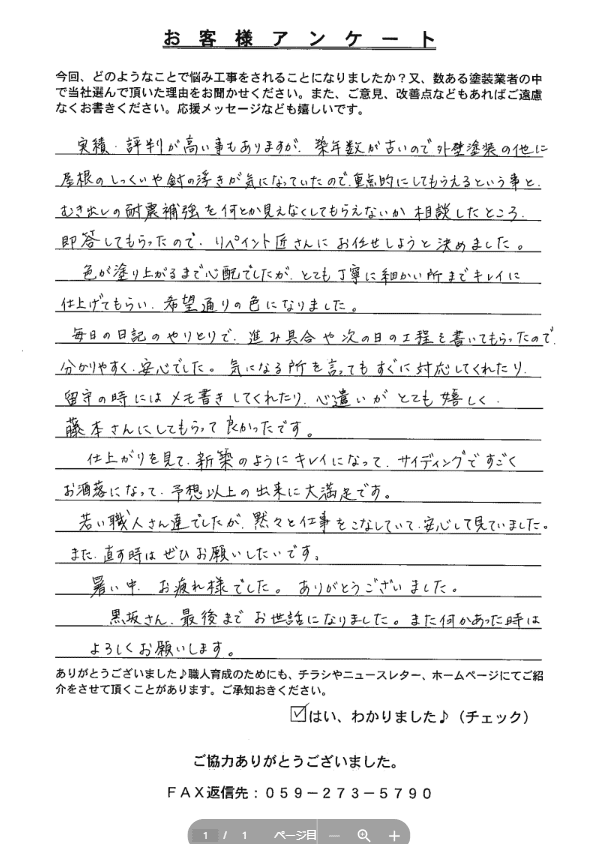 お客様アンケート
今回、どのようなことで悩み工事をされることになりましたか？又、数ある塗装業者の中
で当社選んで頂いた理由をお聞かせください。また、ご意見、改善点などもあればご遠慮
なくお書きください。応援メッセージなども嬉しいです。
実績・評判が高い事もありますが、築年数が古いので外壁塗装の他に
屋根のしっくいや釘の浮きが気になっていたので、重点的にしてもらえるという事と、
むき出しの耐震補強を何とか見えなくしてもらえないか相談したところ、
即答してもらったので、リペイント匠さんにお任せしようと決めました。
色が塗り上がるまで心配でしたが、とても丁寧に細かい所までキレイに
仕上げてもらい、希望通りの色になりました。
毎日の日記のやりとりで、進み具合や次の日の工程を書いてもらったので、
分かりやすく、安心でした。気になる所を言ってもすぐに対応してくれたり、
留守の時にはメモ書きしてくれたり、心遣いがとても嬉しく、
藤本さんにしてもらって良かったです。
仕上がりを見て、新築のようにキレイになって、サイディングですごく
お洒落になって、予想以上の出来に大満足です。
若い職人さん達でしたが、黙々と仕事をこなしていて、安心して見ていました。
また、直す時はぜひお願いしたいです。
暑い中、お疲れ様でした。ありがとうございました。
黒坂さん、最後までお世話になりました。また何かあった時は
よろしくお願いします。
ありがとうございました♪職人育成のためにも、チラシやニュースレター、ホームページにてご紹
介をさせて頂くことがあります。ご承知おきください。
☑はい、わかりました♪（チェック）
ご協力ありがとうございました。
ＦＡＸ返信先：０５９－２７３－５７９０
1 / 1 ページ目